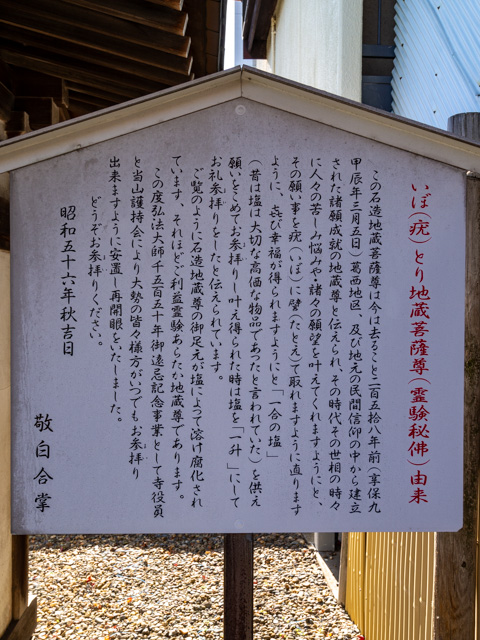 いぼ(疣)とり地蔵菩薩尊(霊験秘佛)由来
この石造地蔵菩薩尊は今は去ること二百五拾八年前(享保九
甲辰年三月五日)葛西地区、及び地元の民間信仰の中から建立
された諸願成就の地蔵尊と伝えられ、その時代、その世相の時々
に人々の苦しみ悩みや諸々の願望を叶えてくれますようにと、
その願い事を疣(いぼ)に譬(たとえ)て取れますように直ります
ように、㐂び幸福が得られますようにと「一合の塩」
(昔は塩は大切な高価な物品であったと言われていた)を供え
願いをこめてお参拝りし叶え得られた時は塩を「一升」にして
お礼参拝りをしたと伝えられています。
ご覧のように石造地蔵尊の御足元が塩によって溶け腐化され
ています。それほどご利益霊験あらたか地蔵尊であります。
この度弘法大師千百五十年御遠忌記念事業として寺役員
と当山護持会により大勢の皆々様方がいつでもお参拝り
出来ますように安置し再開眼をいたしました。
どうぞお参拝りください。
昭和五十六年秋吉日
敬白合掌